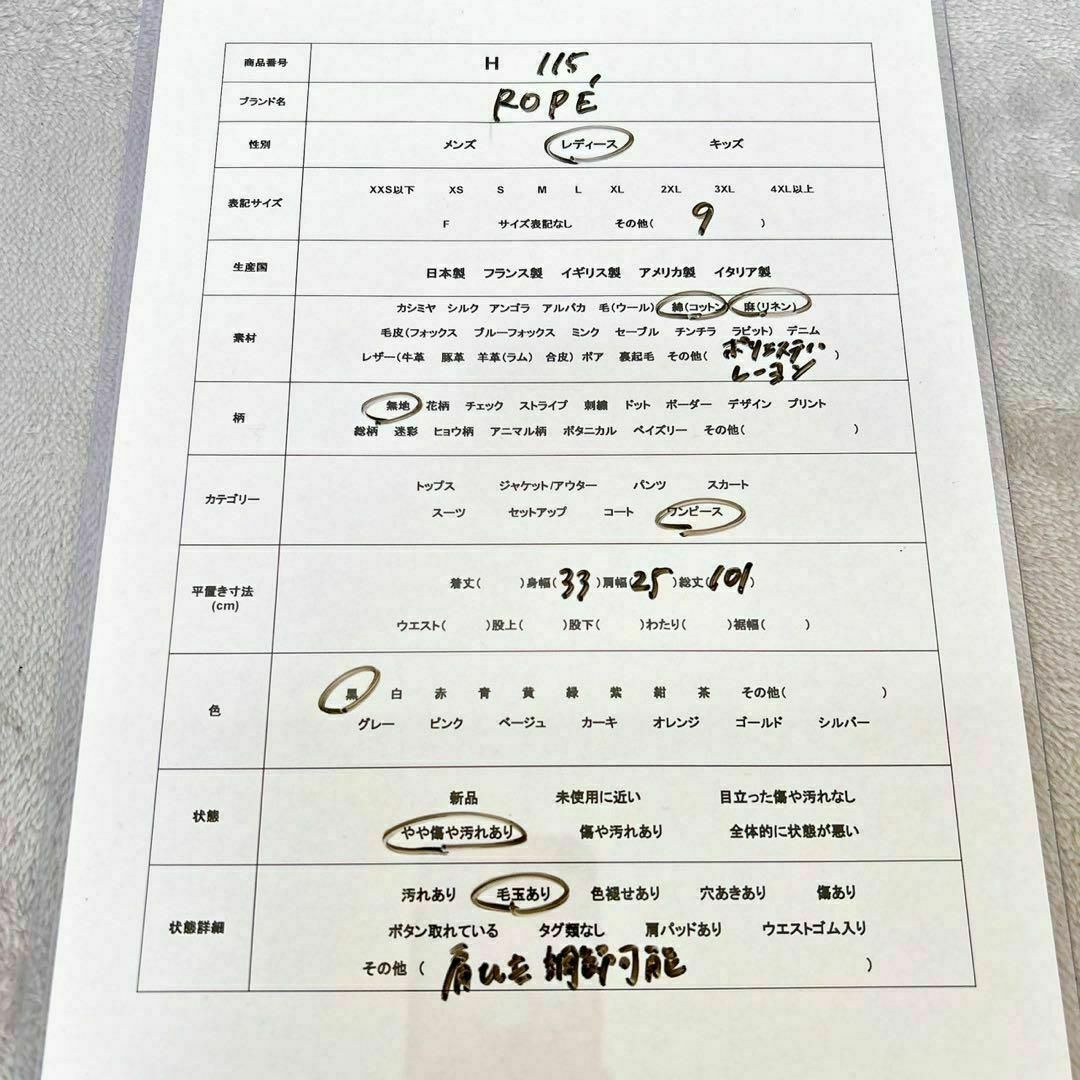 商品番号 H 115
ブランド名 ROPÉ
性別 メンズ レディース キッズ
表記サイズ XXS以下 XS S M L XL 2XL 3XL 4XL以上
F サイズ表記なし その他( 9 )
生産国 日本製 フランス製 イギリス製 アメリカ製 イタリア製
素材 カシミヤ シルク アンゴラ アルパカ 毛(ウール) 綿(コットン) 麻(リネン)
毛皮(フォックス ブルーフォックス ミンク セーブル チンチラ ラビット) デニム
レザー(牛革 豚革 羊革(ラム) 合皮) ボア 裏起毛 その他( ポリエステル )
レーヨン
柄 無地 花柄 チェック ストライプ 刺繍 ドット ボーダー デザイン プリント
総柄 迷彩 ヒョウ柄 アニマル柄 ボタニカル ペイズリー その他( )
カテゴリー トップス ジャケット/アウター パンツ スカート
スーツ セットアップ コート ワンピース
平置き寸法
(cm)
着丈( )身幅(33)肩幅(25)総丈(101)
ウエスト( )股上( )股下( )わたり( )裾幅( )
色 黒 白 赤 青 黄 緑 紫 紺 茶 その他( )
グレー ピンク ベージュ カーキ オレンジ ゴールド シルバー
状態 新品 未使用に近い 目立った傷や汚れなし
やや傷や汚れあり 傷や汚れあり 全体的に状態が悪い
状態詳細 汚れあり 毛玉あり 色褪せあり 穴あきあり 傷あり
ボタン取れている タグ類なし 肩パッドあり ウエストゴム入り
その他 ( 肩ひも 調節可能 )